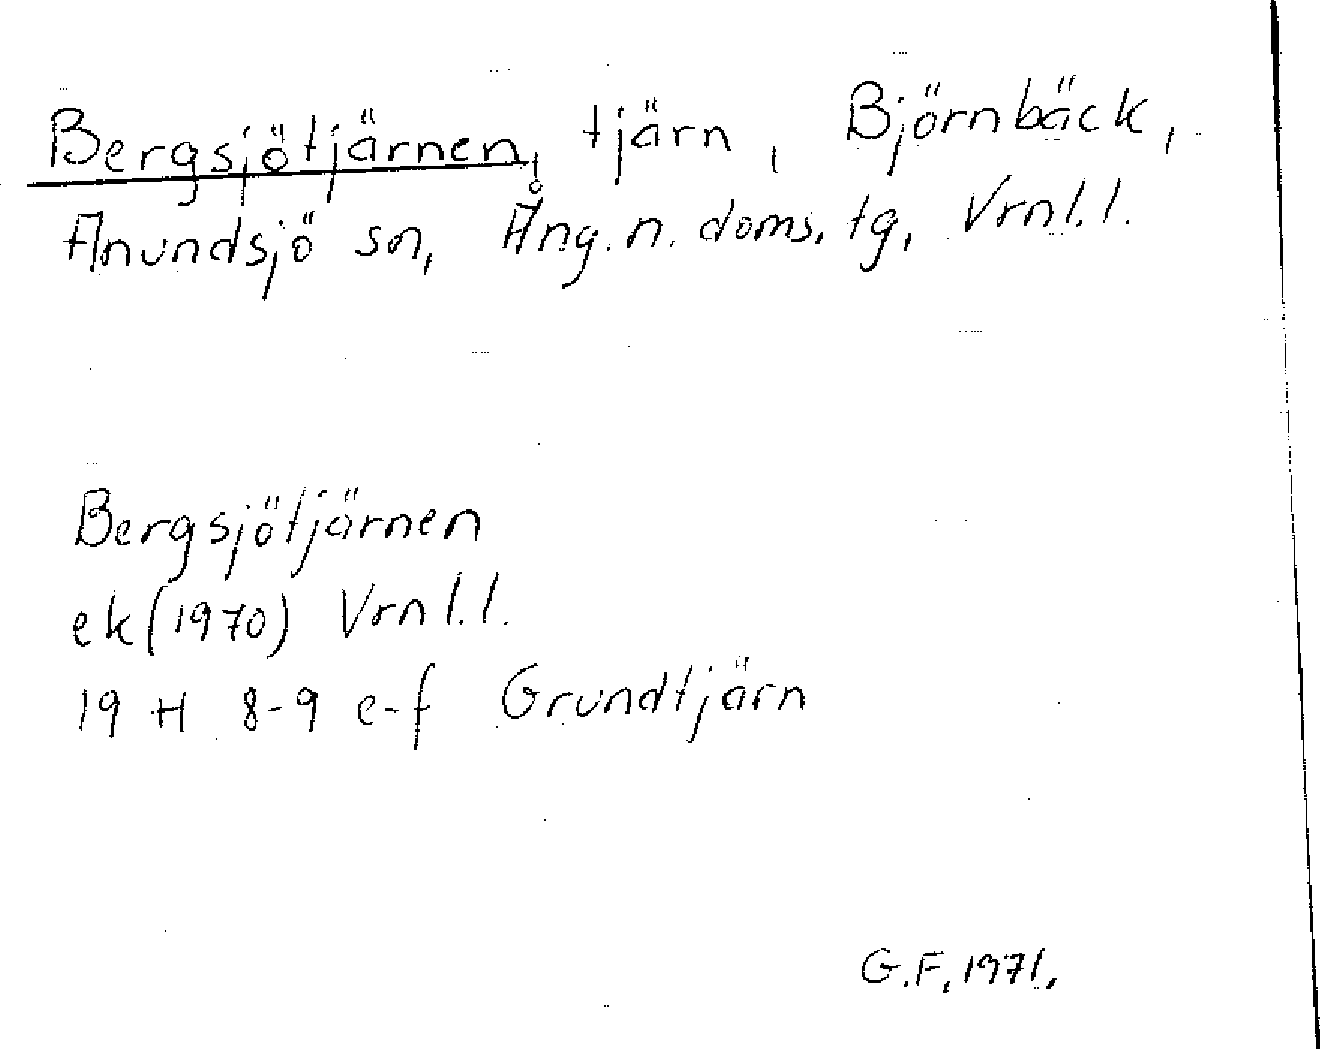 Bergsjötjärnen, tjärn, Björnbäck,
Anundsjö sn, Ång. n. doms. tg, Vrnl. l.
Bergsjötjärnen
ek (1970) Vrnl. l.
19 H 8-9 e-f Grundtjärn
G.F. 1971.